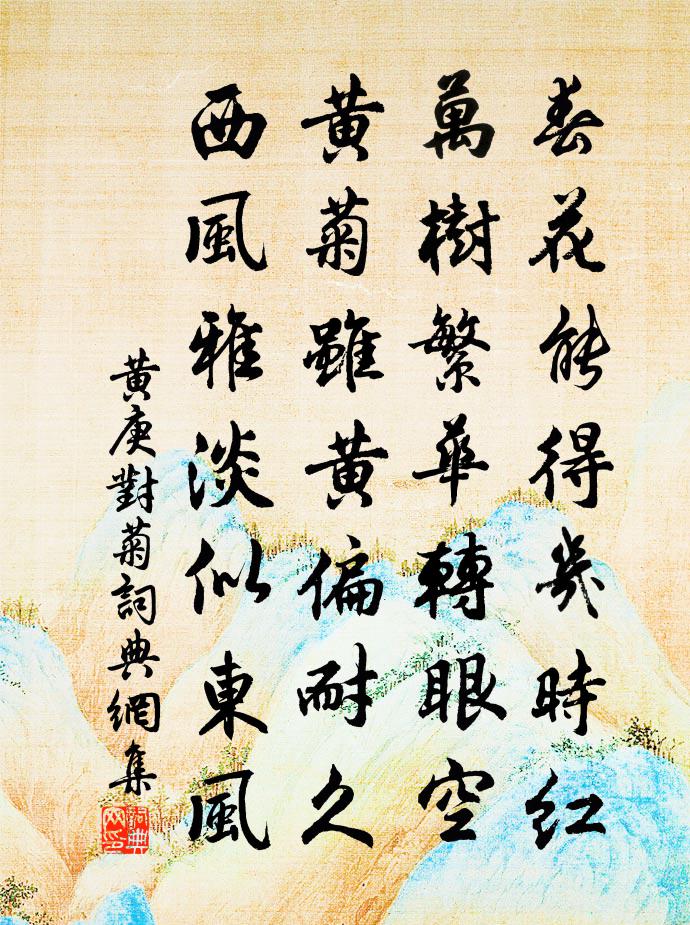 春花能得幾時紅
萬樹繁華轉眼空
黃菊雖黃偏耐久
西風雅淡似東風
黃庚對菊詞典網集
詞典網印